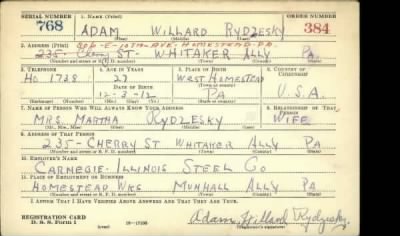 SERIAL NUMBER 1. NAME (Print) ORDER NUMBER
768 ADAM WILLARD RYDZESKY 384
(First) (Middle) (Last)
2. ADDRESS (Print) 606-E-10TH-AVE. HOMESTEAD-PA.
235- Cherry ST- WHITAKER ALLY PA
(Number and street or R. F. D. number) (Town) (County) (State)
3. TELEPHONE 4. AGE IN YEARS 5. PLACE OF BIRTH 6. COUNTRY OF CITIZENSHIP
HO 1738 27 WEST HOMESTEAD
DATE OF BIRTH (Town or county)
12-3-12 PA U.S.A.
(Exchange) (Number) (Mo.) (Day) (Yr.) (State or country)
7. NAME OF PERSON WHO WILL ALWAYS KNOW YOUR ADDRESS 8. RELATIONSHIP OF THAT PERSON
MRS. MARTHA RYDZESKY WIFE
(Mr., Mrs., Miss) (First) (Middle) (Last)
9. ADDRESS OF THAT PERSON
235- CHERRY ST WHITAKER ALLY PA
(Number and street or R. F. D. number) (Town) (County) (State)
10. EMPLOYER'S NAME
CARNEGIE-ILLINOIS STEEL CO
11. PLACE OF EMPLOYMENT OR BUSINESS
HOMESTEAD WKS MUNHALL ALLY PA
(Number and street or R. F. D. number) (Town) (County) (State)
I AFFIRM THAT I HAVE VERIFIED ABOVE ANSWERS AND THAT THEY ARE TRUE.
REGISTRATION CARD Adam Willard Rydzesky
D. S. S. Form 1 (over) (Registrant's signature)